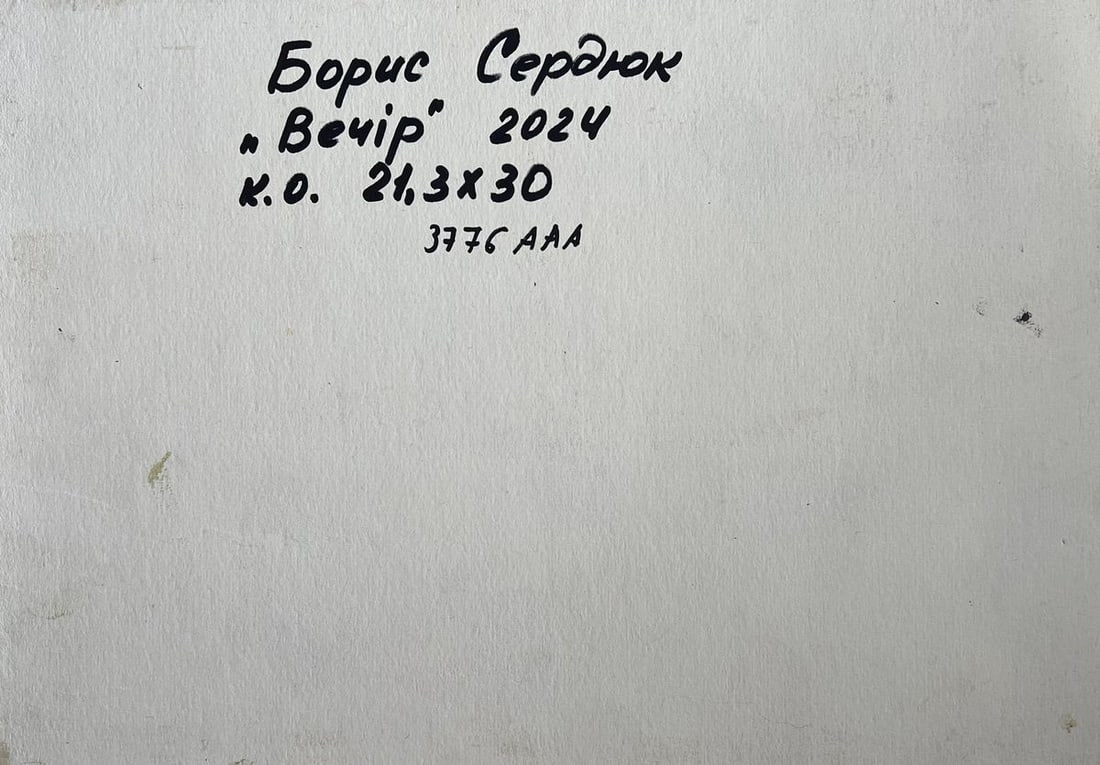 Борис Сердюк
„Вечір" 2024
к.о. 21,3х30
3776 ААА